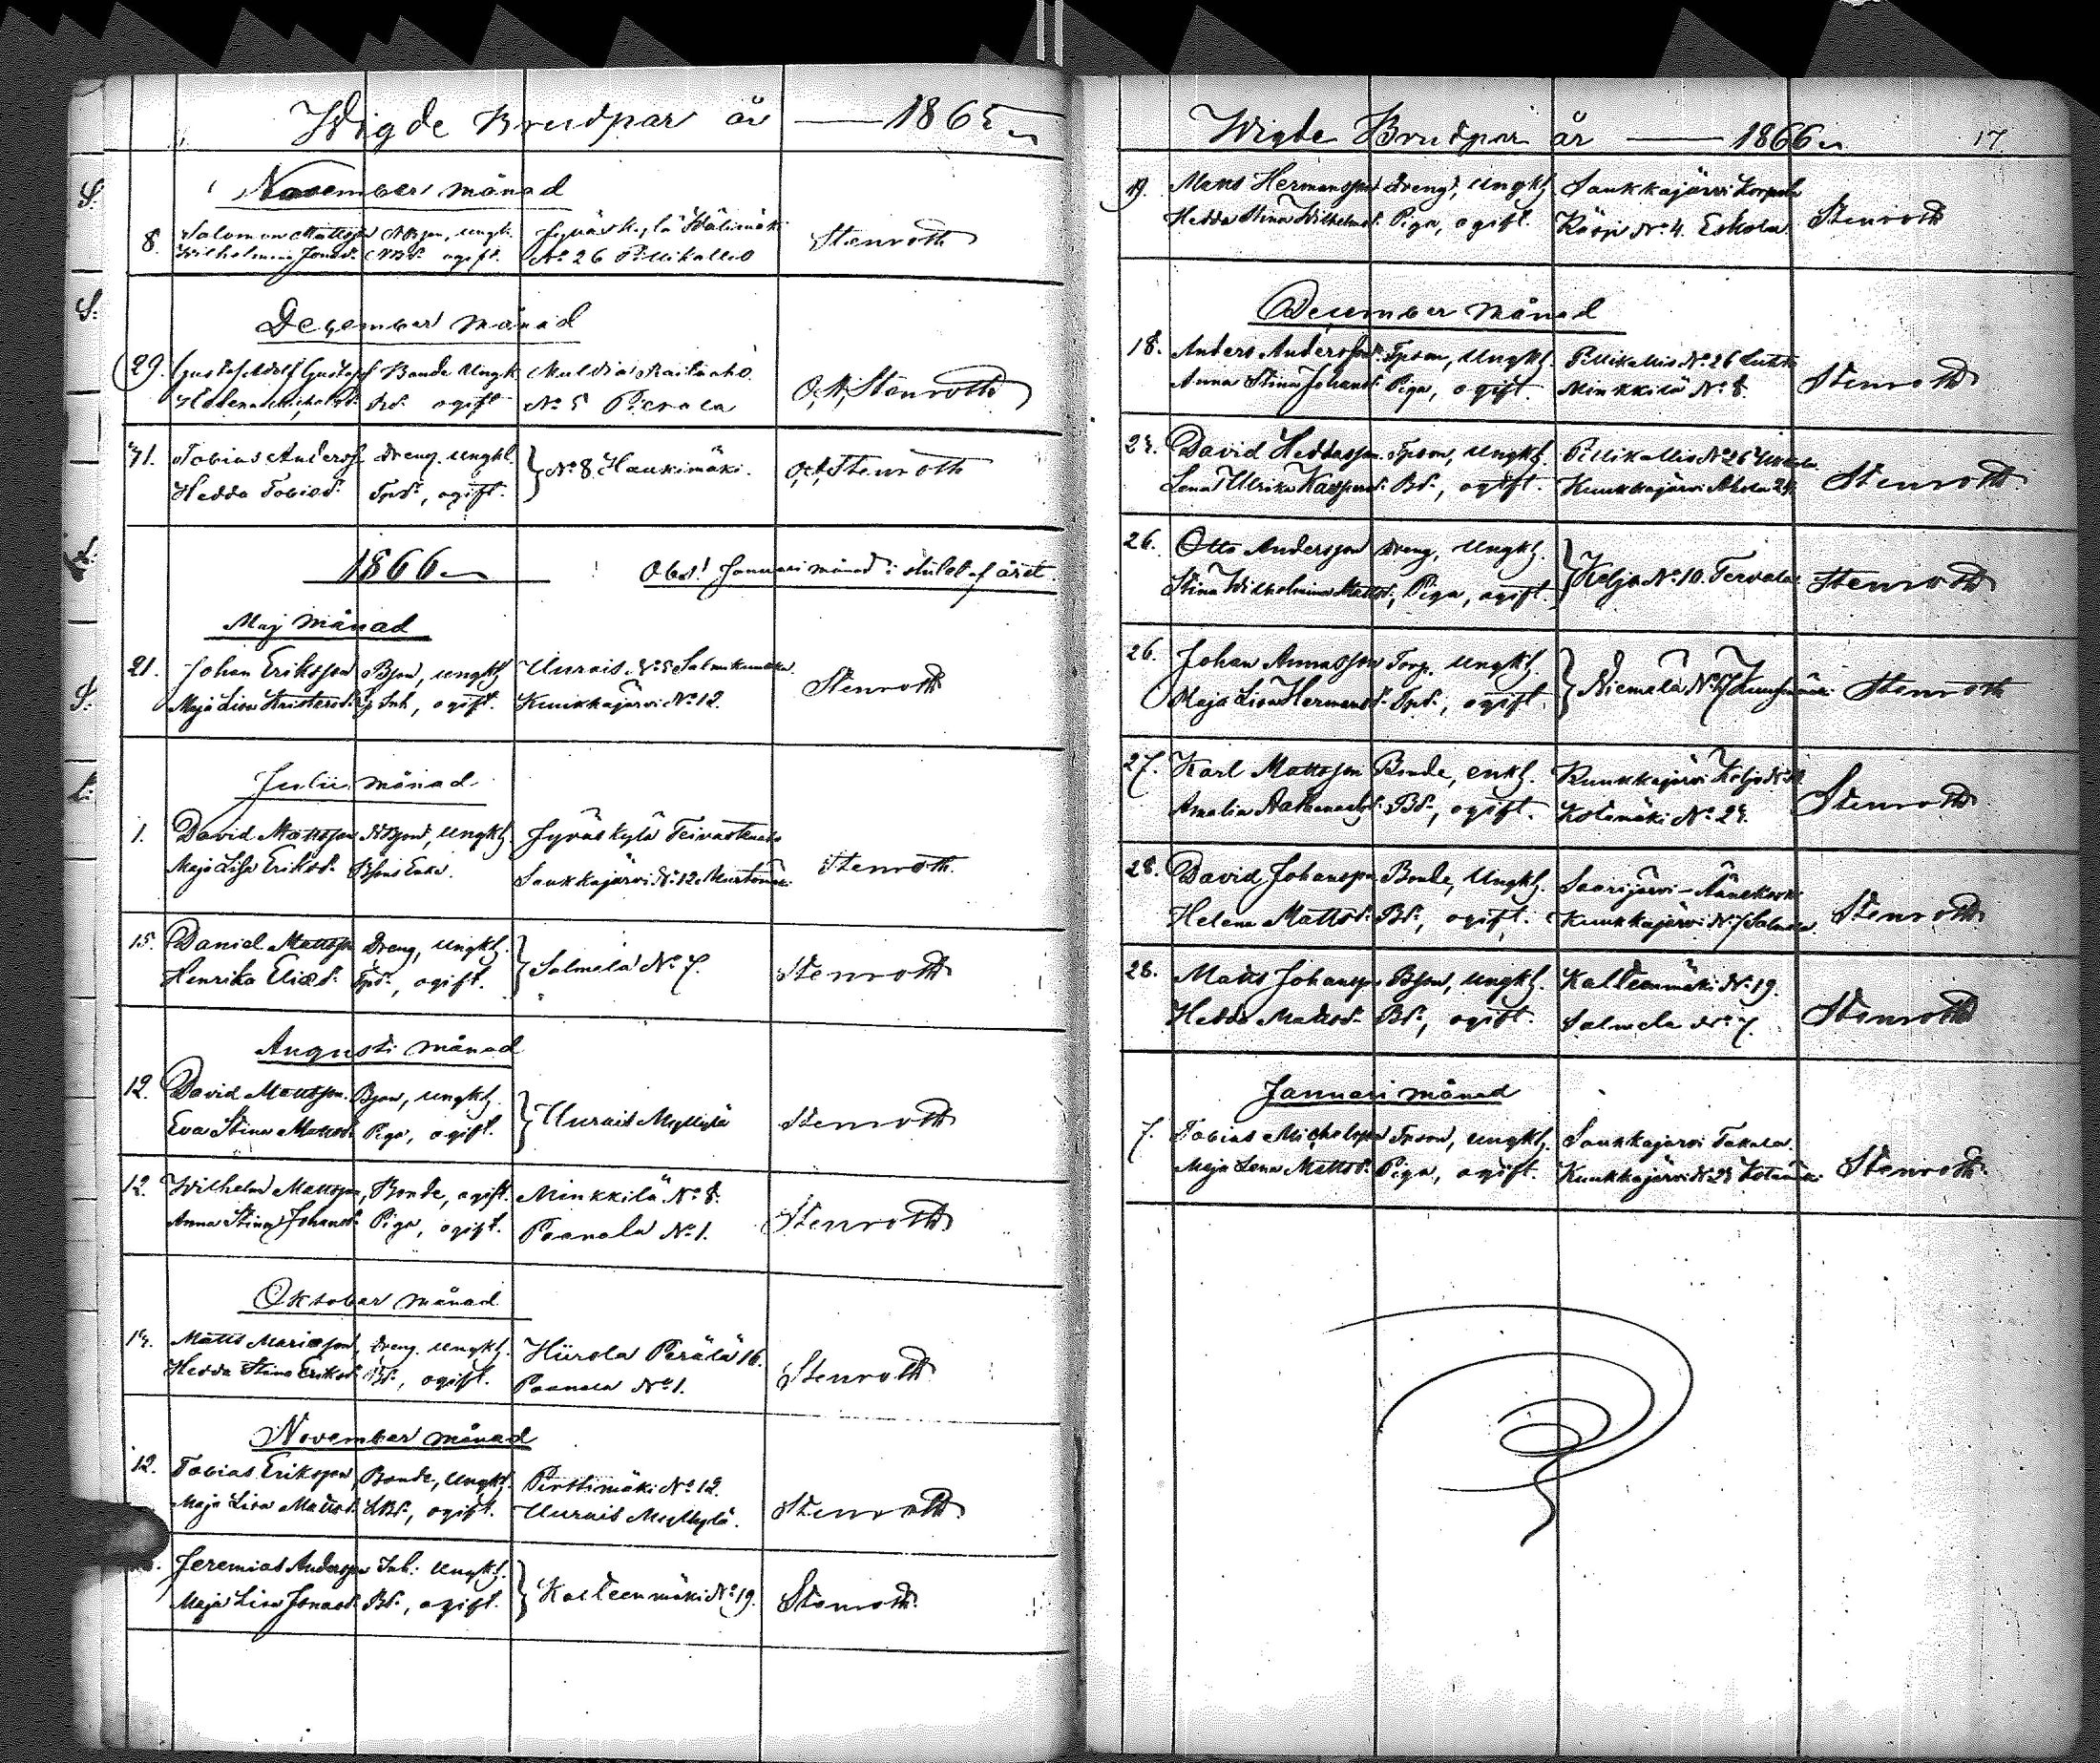 Wigde Brudpar år — 1865
November månad
8. Salomon Mattsson Bson, ungk. Jyväskylä
Wilhelmina Jonasd. ogift. No 26 Pillikallio Stenroth
December månad
29. Gustaf Adolf Gustafs Bonde Ungk. Multia
Helena Michelsd. Bd. ogift No 5 Pierala O, A, Stenroth
31. Tobias Anderss. dreng. ungkl. No 8 Haukimäki. O, A, Stenroth
Hedda Tobiasd. Tpd., ogift.
1866 Obs! Januari månad i slutet af året.
Maj månad
21. Johan Eriksson Bson, ungkl. Uurais No 5
Maja Lisa ogift. Kuukkajärvi No 12. Stenroth
Julii månad
1. David Mattsson Bson, ungkl. Jyväskylä
Maja Lisa Eriksd. Enka. Saukkajärvi No 12 Stenroth.
15. Daniel Mattsson Dreng, ungkl. Salmela No 7. Stenroth
Henrika Eliæd. Tpd., ogift.
Augusti månad
12. David Mattsson. Bson, ungkl. Uurais Myllylä Stenroth
Eva Stina Mattsd. Piga, ogift.
12. Wilhelm Mattsson, Bonde, ogift. Minkkilä No 8.
Anna Stina Johansd. Piga, ogift. Paanala No 1. Stenroth
Oktober månad
14. Matts Mariasson, Dreng. ungkl. Hiirola Perälä 16.
Hedda Stina Eriksd. Bd., ogift. Paanala No 1. Stenroth
November månad
12. Tobias Eriksson, Bonde, Ungkl. Perttimäki No 12.
Maja Lisa Mattsd. Bd., ogift. Uurais Myllylä. Stenroth
Jeremias Andersson Inh. ungkl. Kalteenmäki No 19. Stenroth
Maja Lisa Jonasd. Bd., ogift.
Wigde Brudpar år — 1866 17.
19. Matts Hermansson dreng, ungkl. Saukkajärvi Korpela
Hedda Stina Wilhelmsd. Piga, ogift. No 4. Eskola Stenroth
December månad
18. Anders Andersson. Tpson, Ungkl. Pillikallio No 26
Anna Stina Johansd. Piga, ogift. Minkkilä No 8. Stenroth
24. David Heddasson. Tpson, ungkl. Pillikallio No 26
Lena Ulrika Kaspersd. Bd., ogift. Kuukkajärvi Ahola 24. Stenroth
26. Otto Andersson Dreng, Ungkl. Kelja No 10. Tervala Stenroth
Stina Wilhelmina Mattsd., Piga, ogift.
26. Johan Annasson Torp. ungkl. Niemelä No 17 Stenroth
Maja Lisa Hermansd. Tpd., ogift.
27. Karl Mattsson Bonde, enkl. Kuukkajärvi
Amalia Bd., ogift. Kotamäki No 24. Stenroth
28. David Johansson Bonde, Ungkl. Saarijärvi – Äänekoski
Helena Mattsd. Bd., ogift. Kuukkajärvi No 7 Salmela. Stenroth
28. Matts Johansson Bson, ungkl. Kalteenmäki No 19.
Hedda Mattsd. Bd., ogift. Salmela No 7. Stenroth
Januari månad
7. Tobias Michelsson Tpson, ungkl. Saukkajärvi Takala.
Maja Lena Mattsd. Piga, ogift. Kuukkajärvi No 24 Kotamäki Stenroth